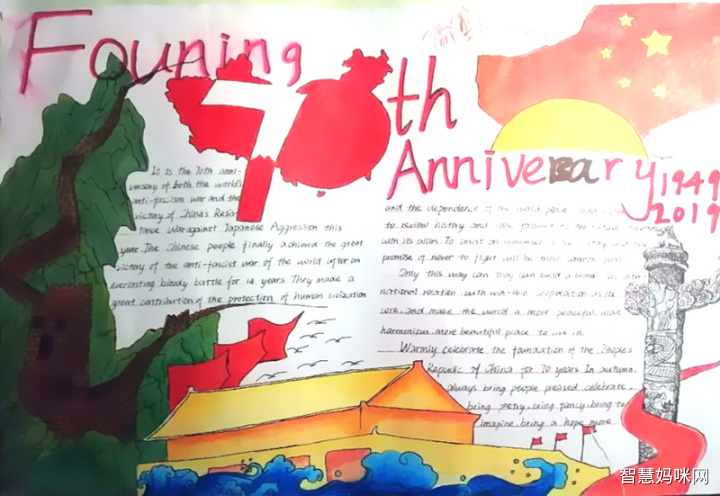 Founing
70th
Anniverary
1949
2019
It is the 70th anni-
versary of both the world's
anti-fascism war and the
victory of China's Resis-
tance War against Japanese Aggression this
year. The Chinese people finally achieved the great
victory of the anti-fascist war of the world after an
everlasting bloody battle for 14 years They made a
great contribution of the protection of human civilization
and the of the world peace
to review history and
with its
promise of never to fight will be their
Only this way can they can build a
national relation with win-win
core, and make the world a most peaceful, more
harmonious, more beautiful place to live in.
Warmly celebrate the foundation of the Peoples
Republic of China for 70 years In autumn.
always bring people pleased celebrate,
bring poetry, bring fancy, bring to
imagine, bring a hope more
智慧妈咪网